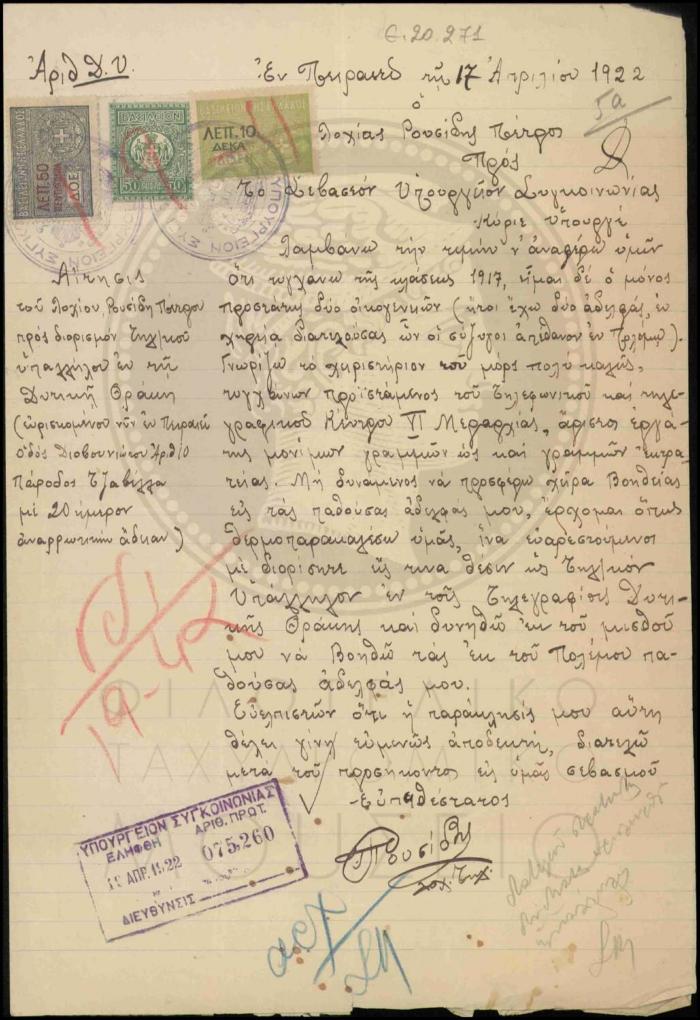 Є.20.271
Ἀριθ Δ.Υ.
Ἐν Πειραιεῖ τῇ 17 Ἀπριλίου 1922
5α
ὁ
Λοχίας Ρουσίδης Πέτρος
Πρός
Τὸ Σεβαστὸν Ὑπουργεῖον Συγκοινωνίας
Κύριε Ὑπουργέ
ΒΑΣΙΛΕΙΟΝ ΤΗΣ ΕΛΛΑΔΟΣ
ΛΕΠ. 50
ΒΑΣΙΛΕΙΟΝ
50
ΒΑΣΙΛΕΙΟΝ ΤΗΣ ΕΛΛΑΔΟΣ
ΛΕΠ. 10
ΔΕΚΑ
ΥΠΟΥΡΓΕΙΟΝ
Αἴτησις
τοῦ Λοχίου Ρουσίδη Πέτρου
πρὸς διορισμὸν Τηλ/κοῦ
ὑπαλλήλου ἐν τῇ
Δυτικῇ Θράκῃ
(εὑρισκομένου νῦν ἐν Πειραιεῖ
ὁδὸς Διοβουνιώτου Ἀριθ 10
πάροδος Τζαβέλλα
μὲ 20 ήμερον
ἀναρρωτικὴν ἄδειαν)
Λαμβάνω τὴν τιμὴν ν' ἀναφέρω ὑμῖν
ὅτι τυγχάνω τῆς κλάσεως 1917, εἶμαι δὲ ὁ μόνος
προστάτης δύο οἰκογενειῶν (ἤτοι ἔχω δύο ἀδελφάς, ἐν
χηρείᾳ διατελούσας ὧν οἱ σύζυγοι ἀπέθανον ἐν Πολέμῳ).
Γνωρίζω τὸ χειριστήριον τοῦ μόρς πολὺ καλῶς,
τυγχάνων προϊστάμενος τοῦ Τηλεφωνικοῦ καὶ τηλε
γραφικοῦ Κέντρου VI Μεραρχίας, ἄριστος ἐργά
της μονίμων γραμμῶν ὡς καὶ γραμμῶν ἐκστρα
τείας. Μὴ δυνάμενος νὰ προσφέρω χεῖρα Βοηθείας
εἰς τὰς παθούσας ἀδελφάς μου, ἔρχομαι ὅπως
θερμοπαρακαλέσω ὑμᾶς, ἵνα εὐαρεστούμενοι
μὲ διορίσητε εἰς τινα θέσιν ὡς Τηλ/κὸν
Ὑπάλληλον ἐν τοῖς Τηλεγραφίοις Δυτι
κῆς Θράκης καὶ δυνηθῶ ἐκ τοῦ μισθοῦ
μου νὰ Βοηθῶ τὰς ἐκ τοῦ Πολέμου πα
θούσας ἀδελφάς μου.
Εὐελπιστῶν ὅτι ἡ παράκλησίς μου αὕτη
θέλει γίνῃ εὐμενῶς ἀποδεκτή, διατελῶ
μετὰ τοῦ προσήκοντος εἰς ὑμᾶς σεβασμοῦ
Εὐπειθέστατος
ΠΡουσίδης
ΥΠΟΥΡΓΕΙΟΝ ΣΥΓΚΟΙΝΩΝΙΑΣ
ΕΛΗΦΘΗ ΑΡΙΘ. ΠΡΩΤ.
ΑΠΡ. 1922 075,260
ΔΙΕΥΘΥΝΣΙΣ
ΦΙΛΟΤΕΛΙΚΟ
ΤΑΧΥΔΡΟΜΙΚΟ
ΜΟΥΣΕΙΟ